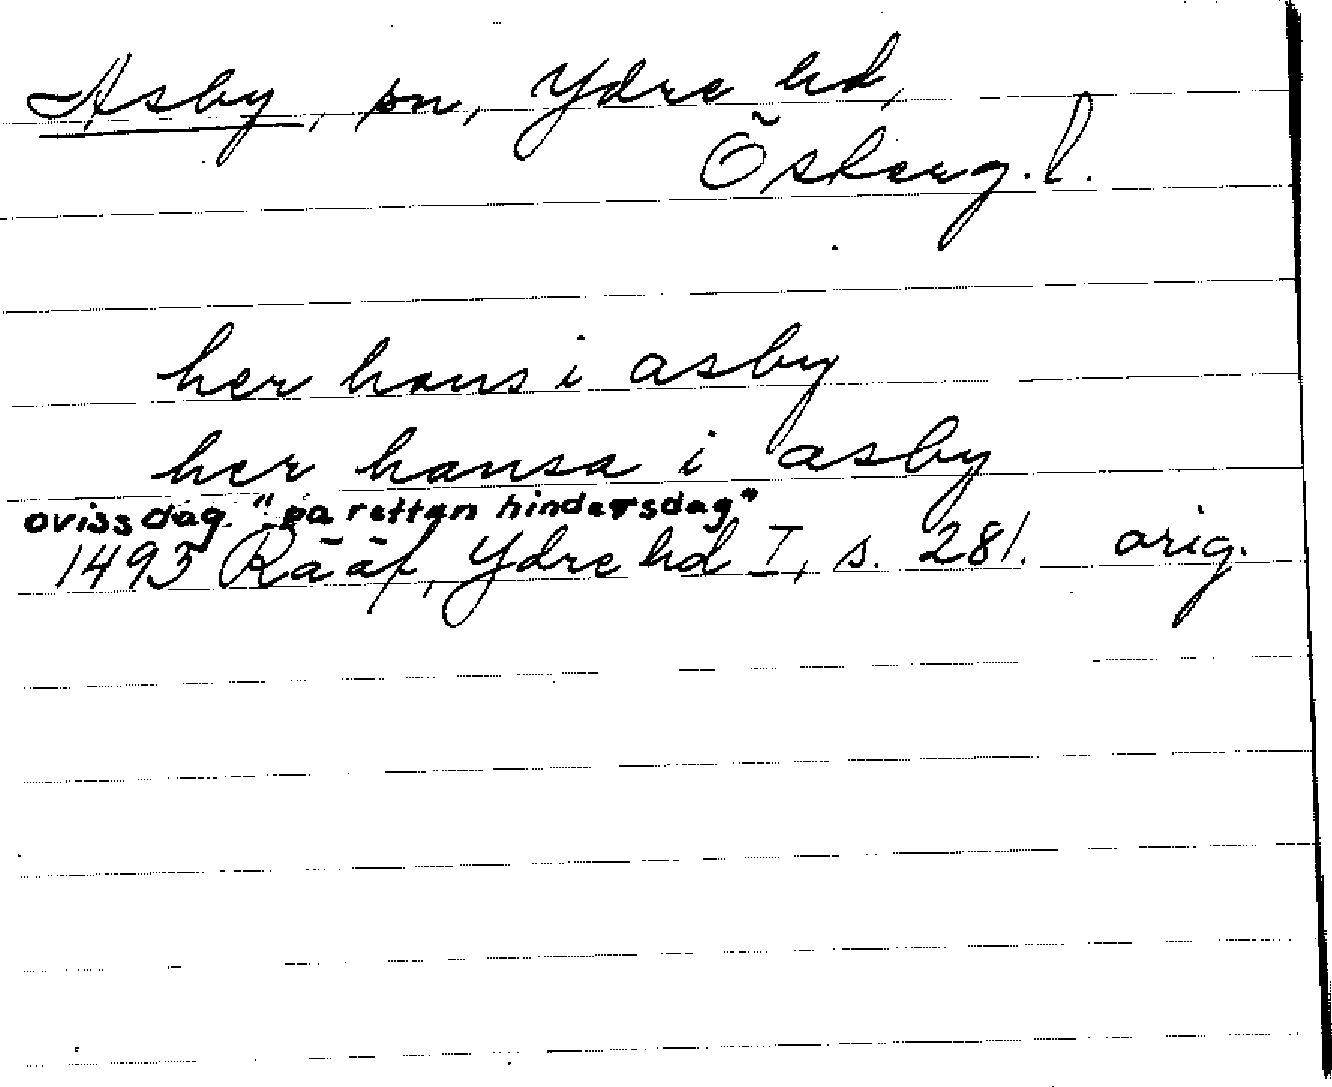 Asby, sn, Ydre hd,
Österg. l.
her hans i asby
her hansa i asby
oviss dag. "pa rettan hindersdag"
1493 Rääf, Ydre hd I, s. 281. orig.